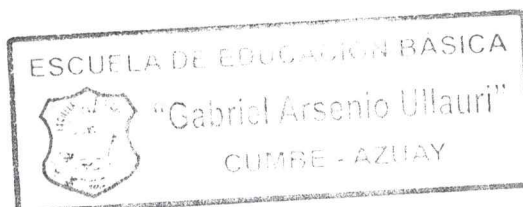 ESCUELA DE EDUCACION BASICA
"Gabriel Arsenio Ullauri"
CUMBE - AZUAY